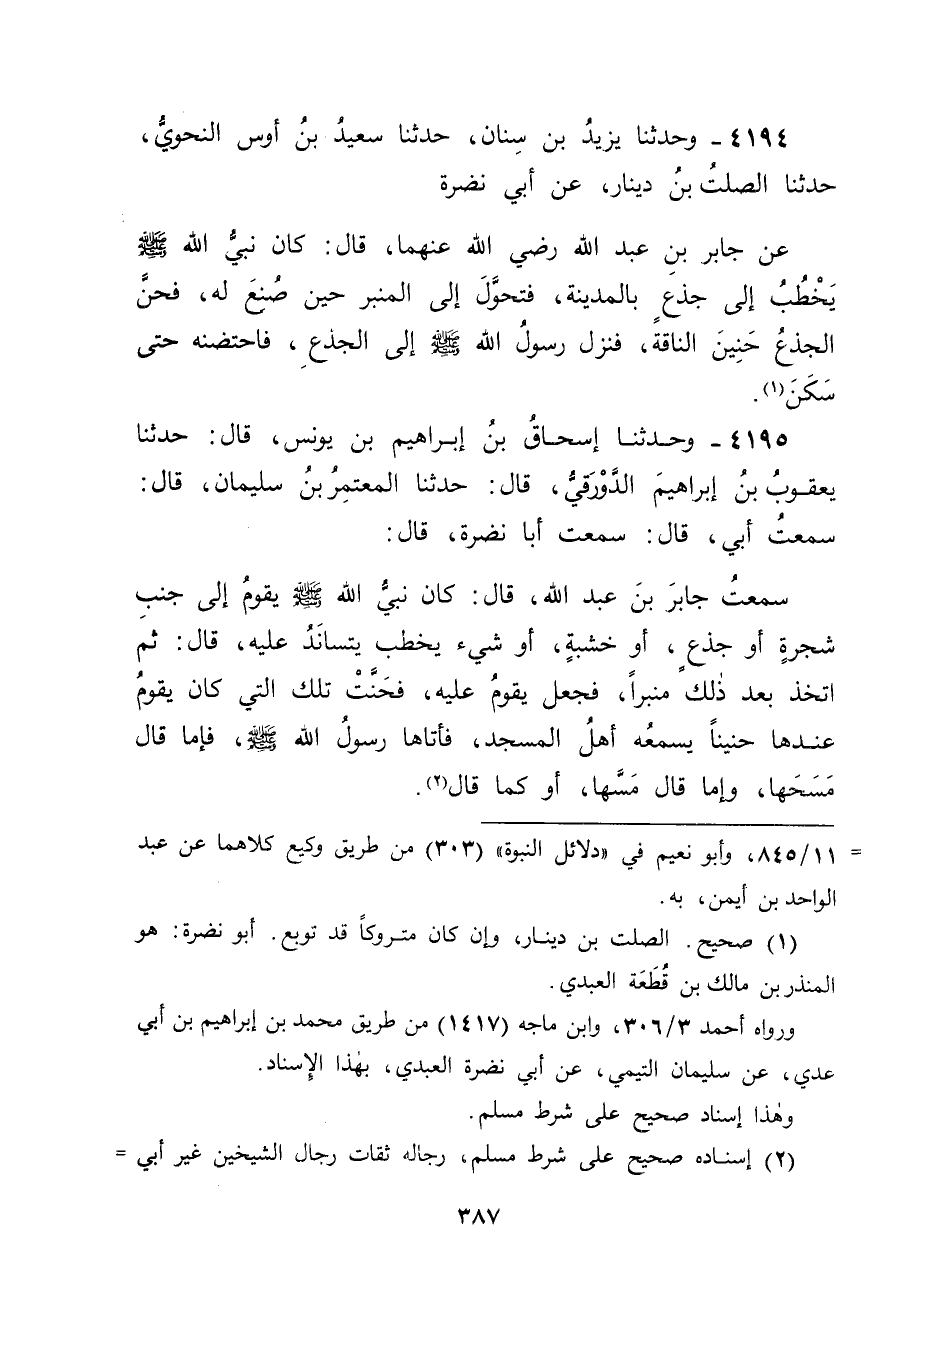 ٤١٩٤ ـ وحدثنا يزيدُ بن سِنان، حدثنا سعيدُ بنُ أوس النحويُّ،
حدثنا الصلتُ بنُ دينار، عن أبي نضرة
عن جابر بنِ عبد الله رضي الله عنهما، قال: كان نبيُّ الله ﷺ
يَخْطُبُ إلى جذعٍ بالمدينة، فتحوَّلَ إلى المنبر حين صُنِعَ له، فحنَّ
الجذعُ حَنِينَ الناقة، فنزل رسولُ الله ﷺ إلى الجذعِ، فاحتضنه حتى
سَكَنَ(١).
٤١٩٥ ـ وحدثنا إسحاقُ بنُ إبراهيم بن يونس، قال: حدثنا
يعقوبُ بنُ إبراهيمَ الدَّوْرَقيُّ، قال: حدثنا المعتمِرُ بنُ سليمان، قال:
سمعتُ أبي، قال: سمعت أبا نضرة، قال:
سمعتُ جابرَ بنَ عبد الله، قال: كان نبيُّ الله ﷺ يقومُ إلى جنبِ
شجرةٍ أو جذعٍ، أو خشبةٍ، أو شيء يخطب يتسانَدُ عليه، قال: ثم
اتخذ بعد ذٰلك منبراً، فجعل يقومُ عليه، فحَنَّتْ تلك التي كان يقومُ
عندها حنيناً يسمعُه أهلُ المسجد، فأتاها رسولُ الله ﷺ، فإما قال
مَسَحَها، وإما قال مَسَّها، أو كما قال(٢).
= ٨٤٥/١١، وأبو نعيم في «دلائل النبوة» (٣٠٣) من طريق وكيع كلاهما عن عبد
الواحد بن أيمن، به.
(١) صحيح. الصلت بن دينار، وإن كان متروكاً قد توبع. أبو نضرة: هو
المنذر بن مالك بن قُطَعَة العبدي.
ورواه أحمد ٣٠٦/٣، وابن ماجه (١٤١٧) من طريق محمد بن إبراهيم بن أبي
عدي، عن سليمان التيمي، عن أبي نضرة العبدي، بهٰذا الإسناد.
وهٰذا إسناد صحيح على شرط مسلم.
(٢) إسناده صحيح على شرط مسلم، رجاله ثقات رجال الشيخين غير أبي =
٣٨٧